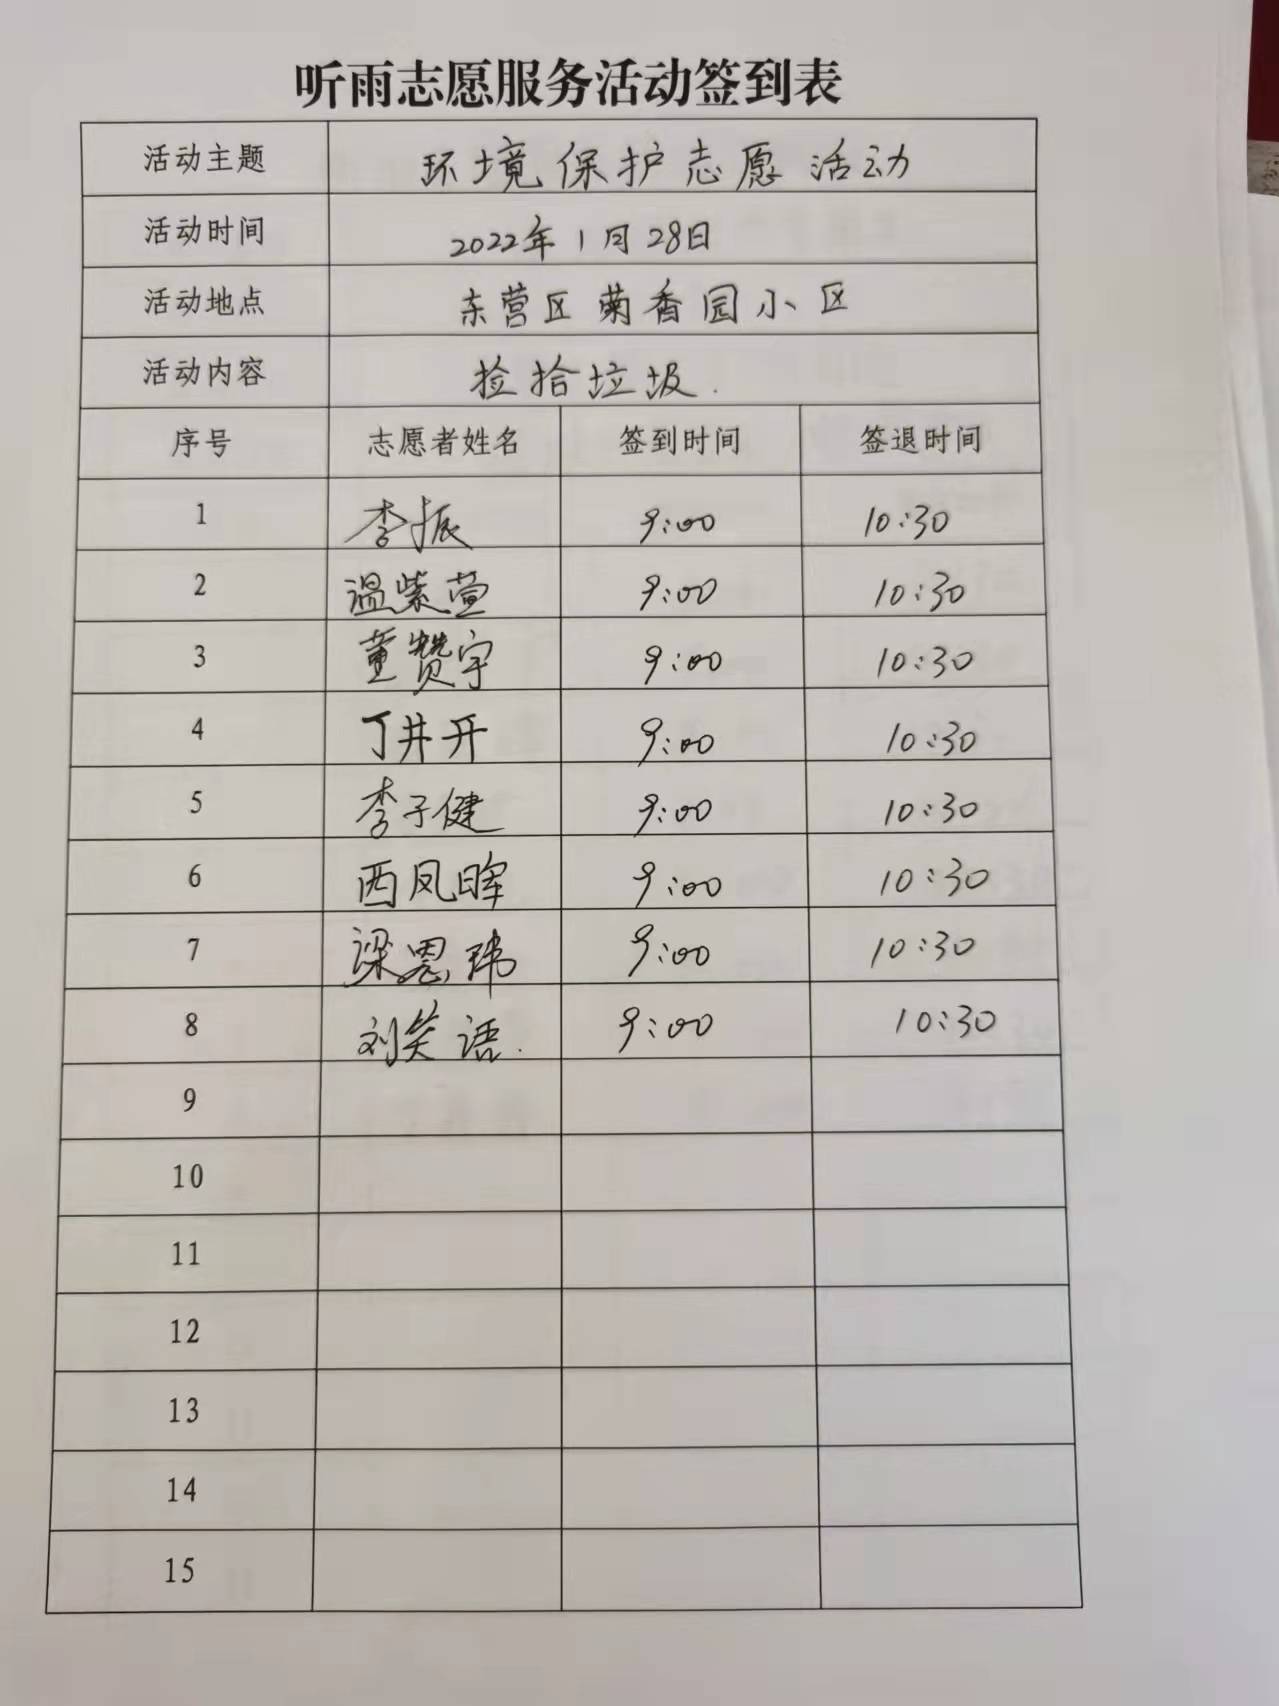 听雨志愿服务活动签到表
活动主题 环境保护志愿活动
活动时间 2022年1月28日
活动地点 东营区菊香园小区
活动内容 捡拾垃圾.
序号 志愿者姓名 签到时间 签退时间
1 李振 9:00 10:30
2 温紫萱 9:00 10:30
3 董赞宇 9:00 10:30
4 丁井开 9:00 10:30
5 李子健 9:00 10:30
6 西凤晖 9:00 10:30
7 梁恩玮 9:00 10:30
8 刘笑语. 9:00 10:30
9
10
11
12
13
14
15